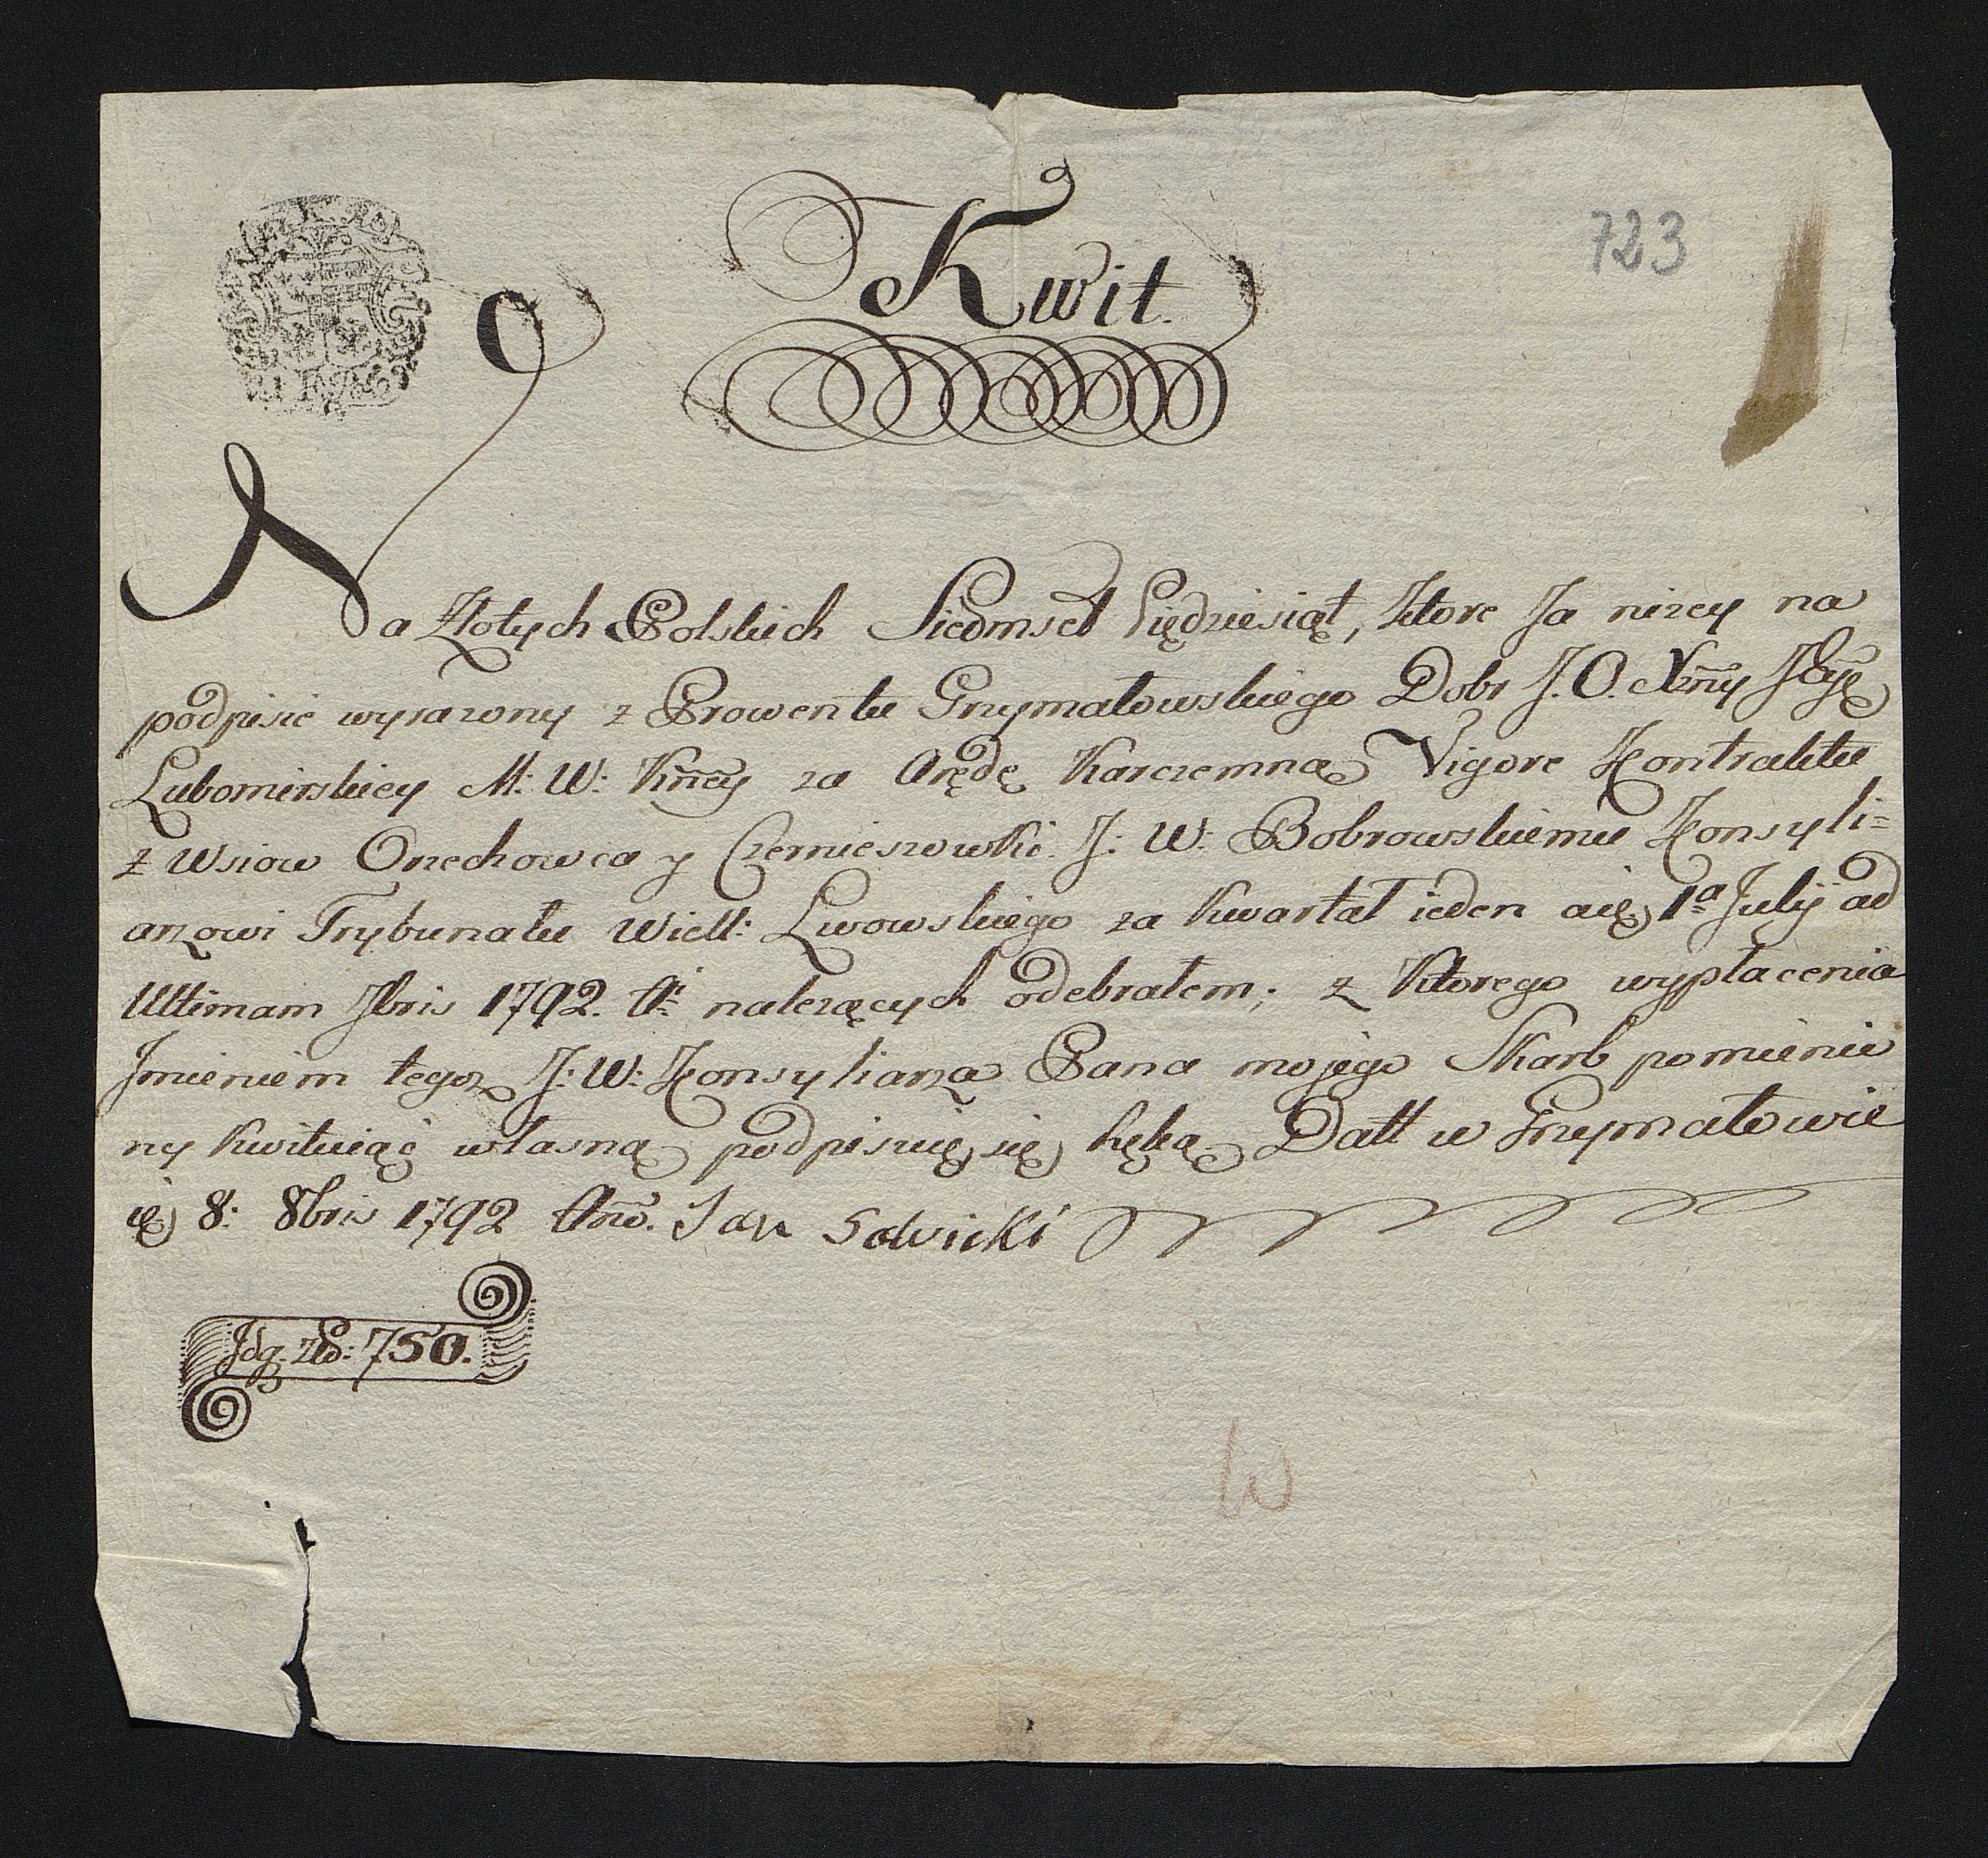 723
Kwit.
Na Złotych Polskich Siedmset Pięдziesiąt, ktore Ja nizey na
podpisie wyrazony z Prowentu Grzymałowskiego Dobr J. O. Xzny
Lubomirskiey M: W: Kney za Arędę Karczemną Vigore Kontraktu
z Wsiow Orzechowca y Czernieszowki J: W: Bobrowskiemu Konsyli=
arzowi Trybunału Wiell: Lwowskiego za Kwartał ieden a 1ª Julÿ ad
Ultimam 7bris 1792. należących odebrałem; z Ktorego wypłacenia
Jmieniem tegoz J: W: Konsyliarza Pana mojego Skarb pomienio
ny kwituiąc własną podpisuię się Ręką Datt w Grzymałowie
8: 8bris 1792 Jan Solvicki
Jdq. zło: 750.
W